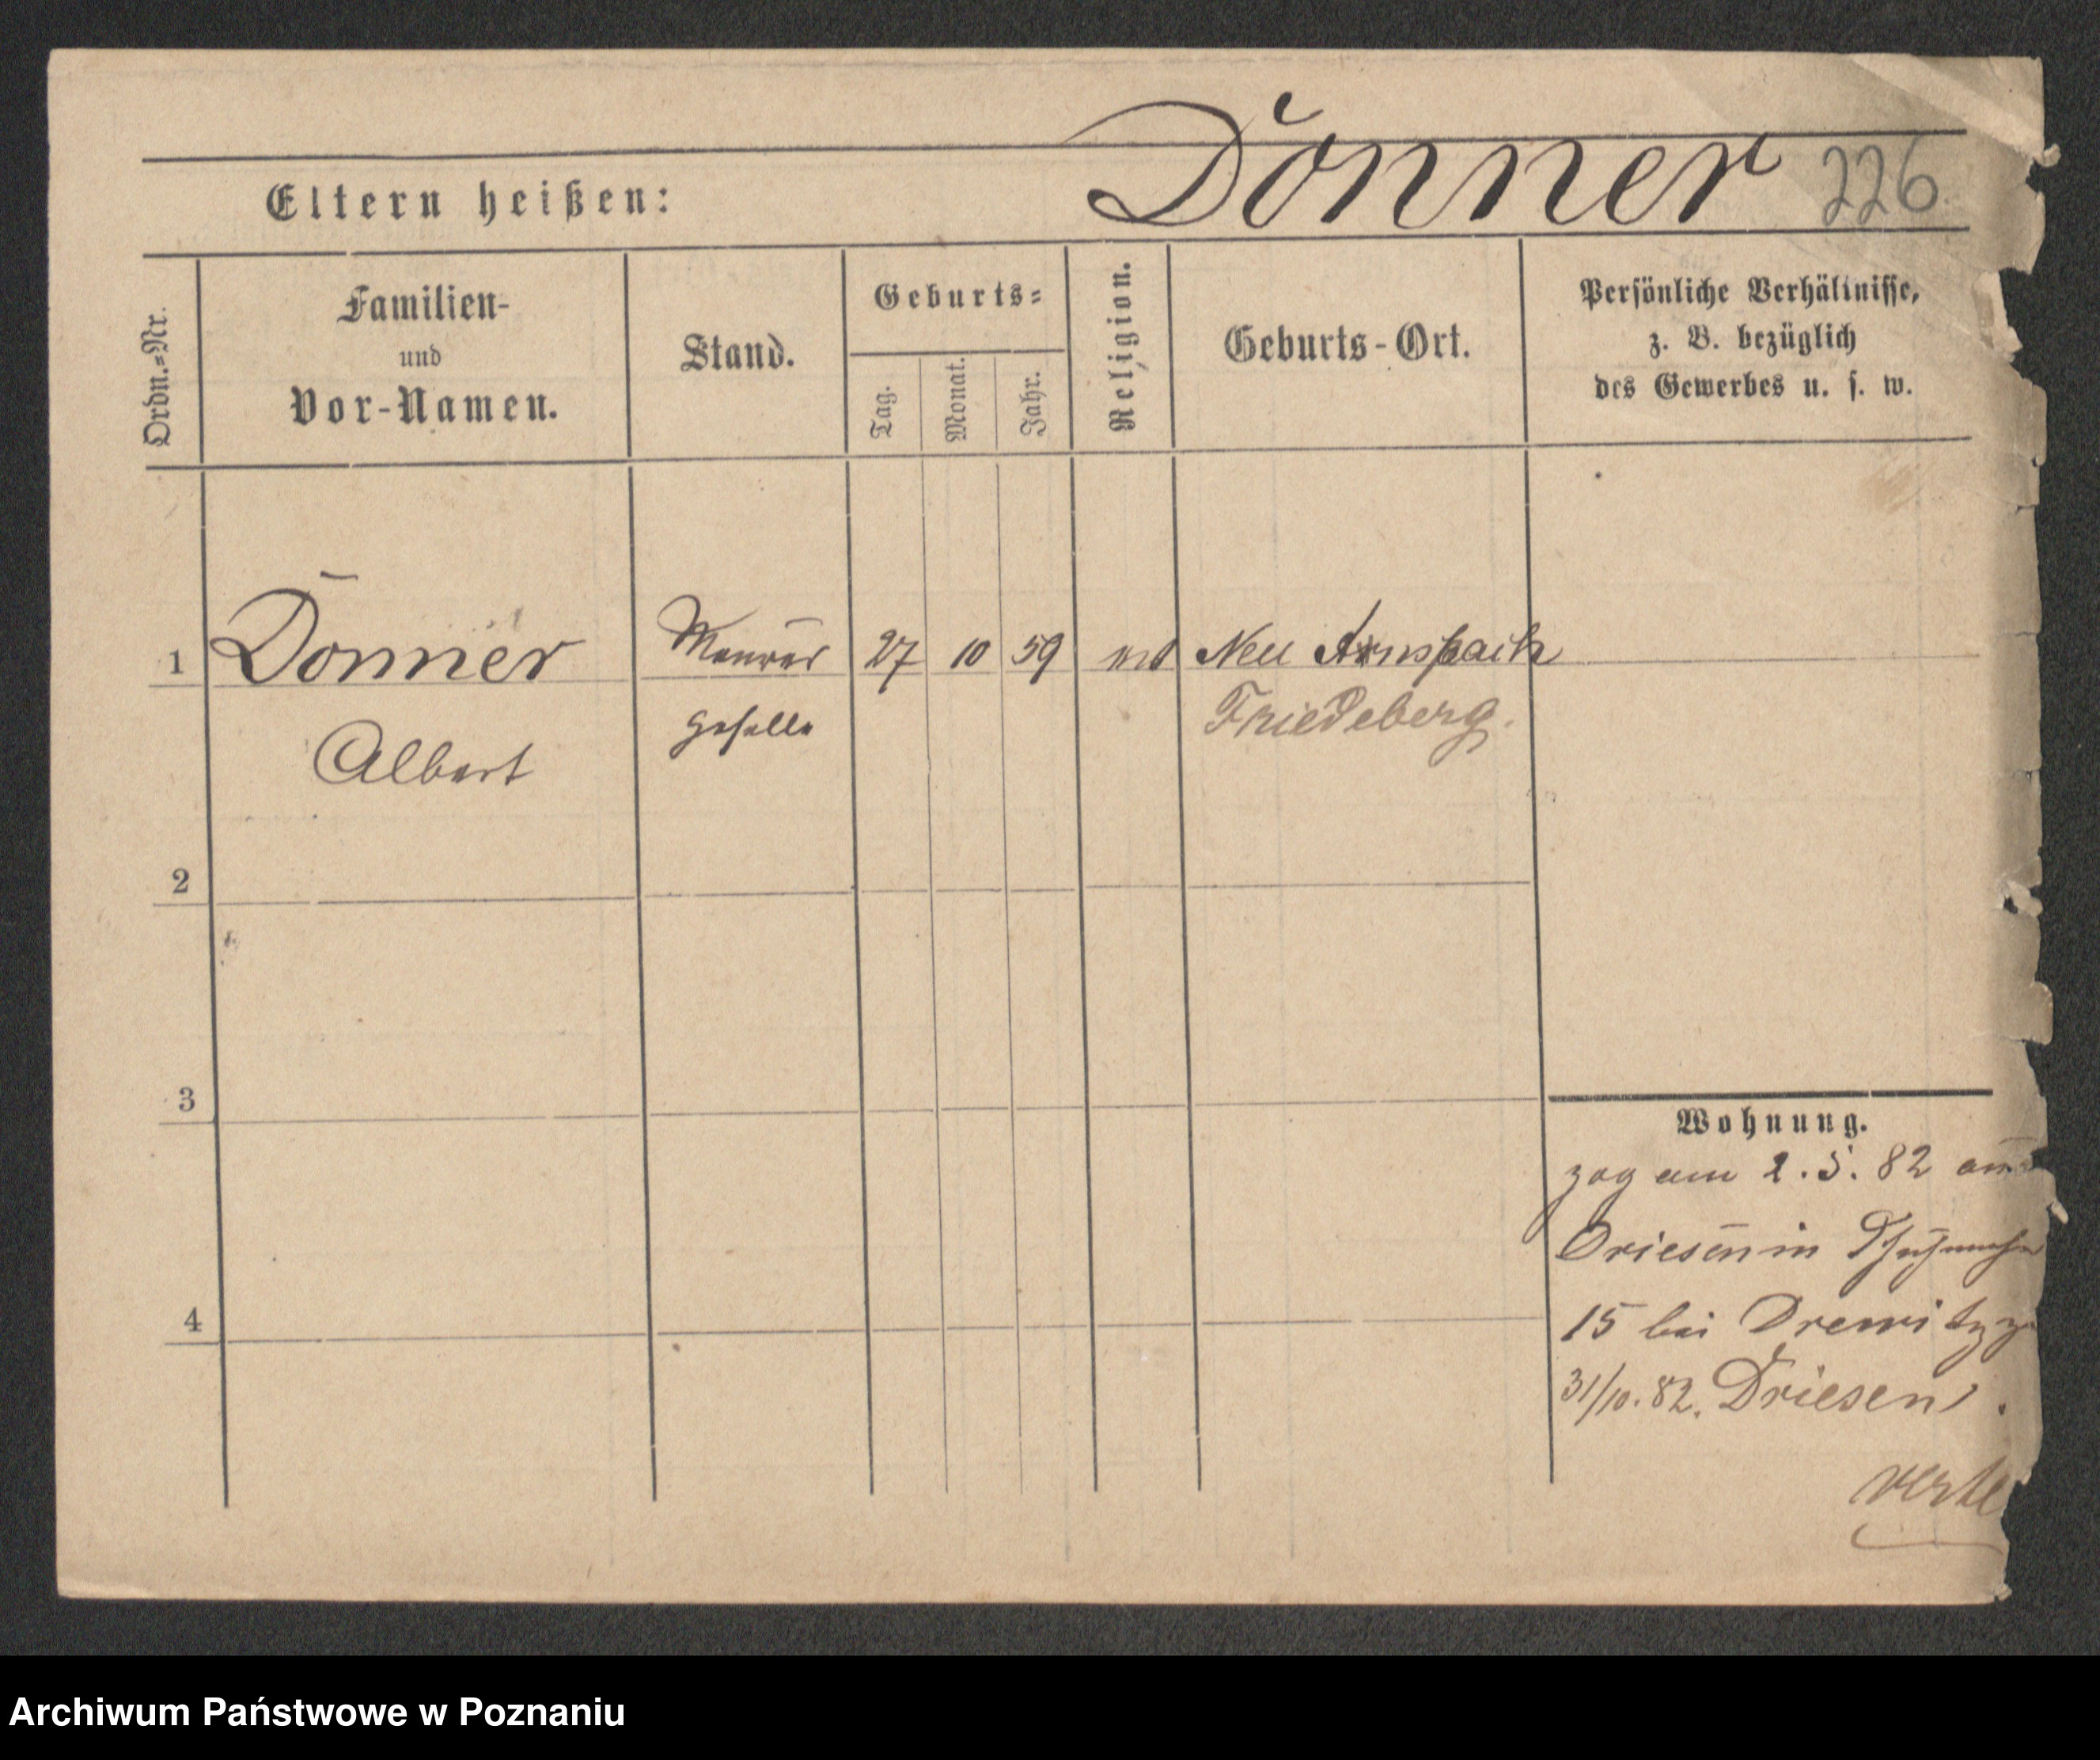 Donner 226
Eltern heißen:
Ordn.-Nr.
Familien-
und
Vor-Namen.
Stand.
Geburts-
Tag.
Monat.
Jahr.
Religion.
Geburts-Ort.
Persönliche Verhältnisse,
z. B. bezüglich
des Gewerbes u. s. w.
1 Donner Maurer 27 10 59 Neu
Geselle Friedeberg.
Albert
2
3
4
Wohnung.
zog am 2.5.82
Driesen in
15 bei Drewitz
31/10.82. Driesen
Archiwum Państwowe w Poznaniu